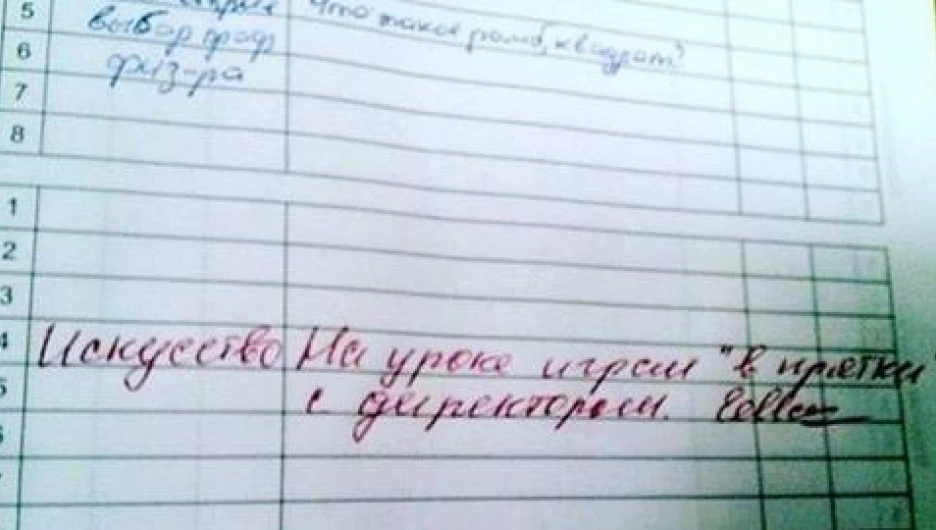 5 Что такое ромб, квадрат?
6 выбор граф
7 физ-ра
8
1
2
3
4 Искусство На уроке играл "в прятки"
5 с директором.